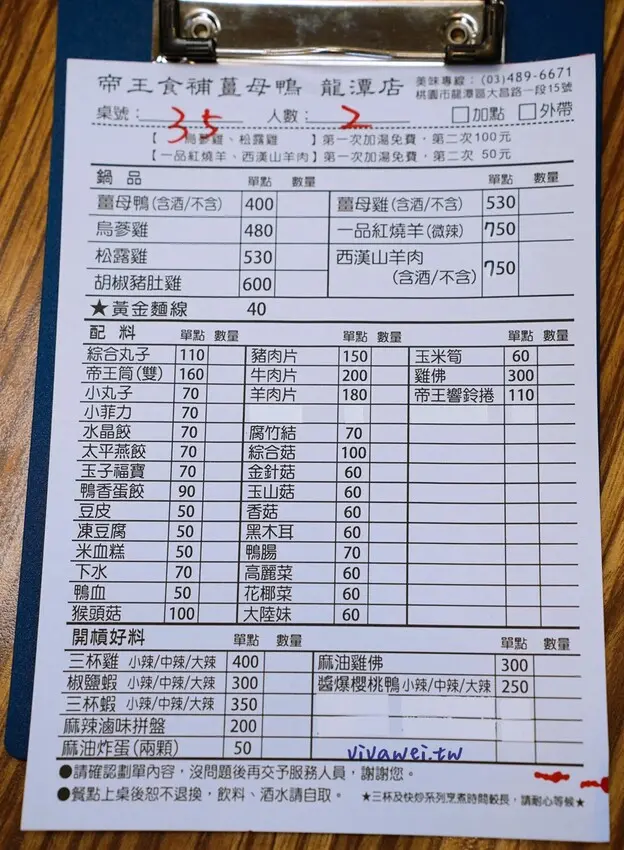 帝王食補薑母鴨 龍潭店
美味專線：(03)489-6671
桃園市龍潭區大昌路一段15號
桌號：35 人數：2 □加點 □外帶
【 烏參雞、松露雞 】第一次加湯免費，第二次100元
【一品紅燒羊、西漢山羊肉】第一次加湯免費，第二次 50元
鍋品 單點 數量 單點 數量
薑母鴨(含酒/不含) 400 薑母雞(含酒/不含) 530
烏參雞 480 一品紅燒羊(微辣) 750
松露雞 530 西漢山羊肉(含酒/不含) 750
胡椒豬肚雞 600
★黃金麵線 40
配料 單點 數量 單點 數量 單點 數量
綜合丸子 110 豬肉片 150 玉米筍 60
帝王筒(雙) 160 牛肉片 200 雞佛 300
小丸子 70 羊肉片 180 帝王響鈴捲 110
小菲力 70
水晶餃 70 腐竹結 70
太平燕餃 70 綜合菇 100
玉子福寶 70 金針菇 60
鴨香蛋餃 90 玉山菇 60
豆皮 50 香菇 60
凍豆腐 50 黑木耳 60
米血糕 50 鴨腸 70
下水 70 高麗菜 60
鴨血 50 花椰菜 60
猴頭菇 100 大陸妹 60
開槓好料 單點 數量 單點 數量
三杯雞 小辣/中辣/大辣 400 麻油雞佛 300
椒鹽蝦 小辣/中辣/大辣 300 醬爆櫻桃鴨 小辣/中辣/大辣 250
三杯蝦 小辣/中辣/大辣 350
麻辣滷味拼盤 200
麻油炸蛋(兩顆) 50
vivawei.tw
●請確認劃單內容，沒問題後再交予服務人員，謝謝您。
●餐點上桌後恕不退換，飲料、酒水請自取。 ★三杯及快炒系列烹煮時間較長，請耐心等候★